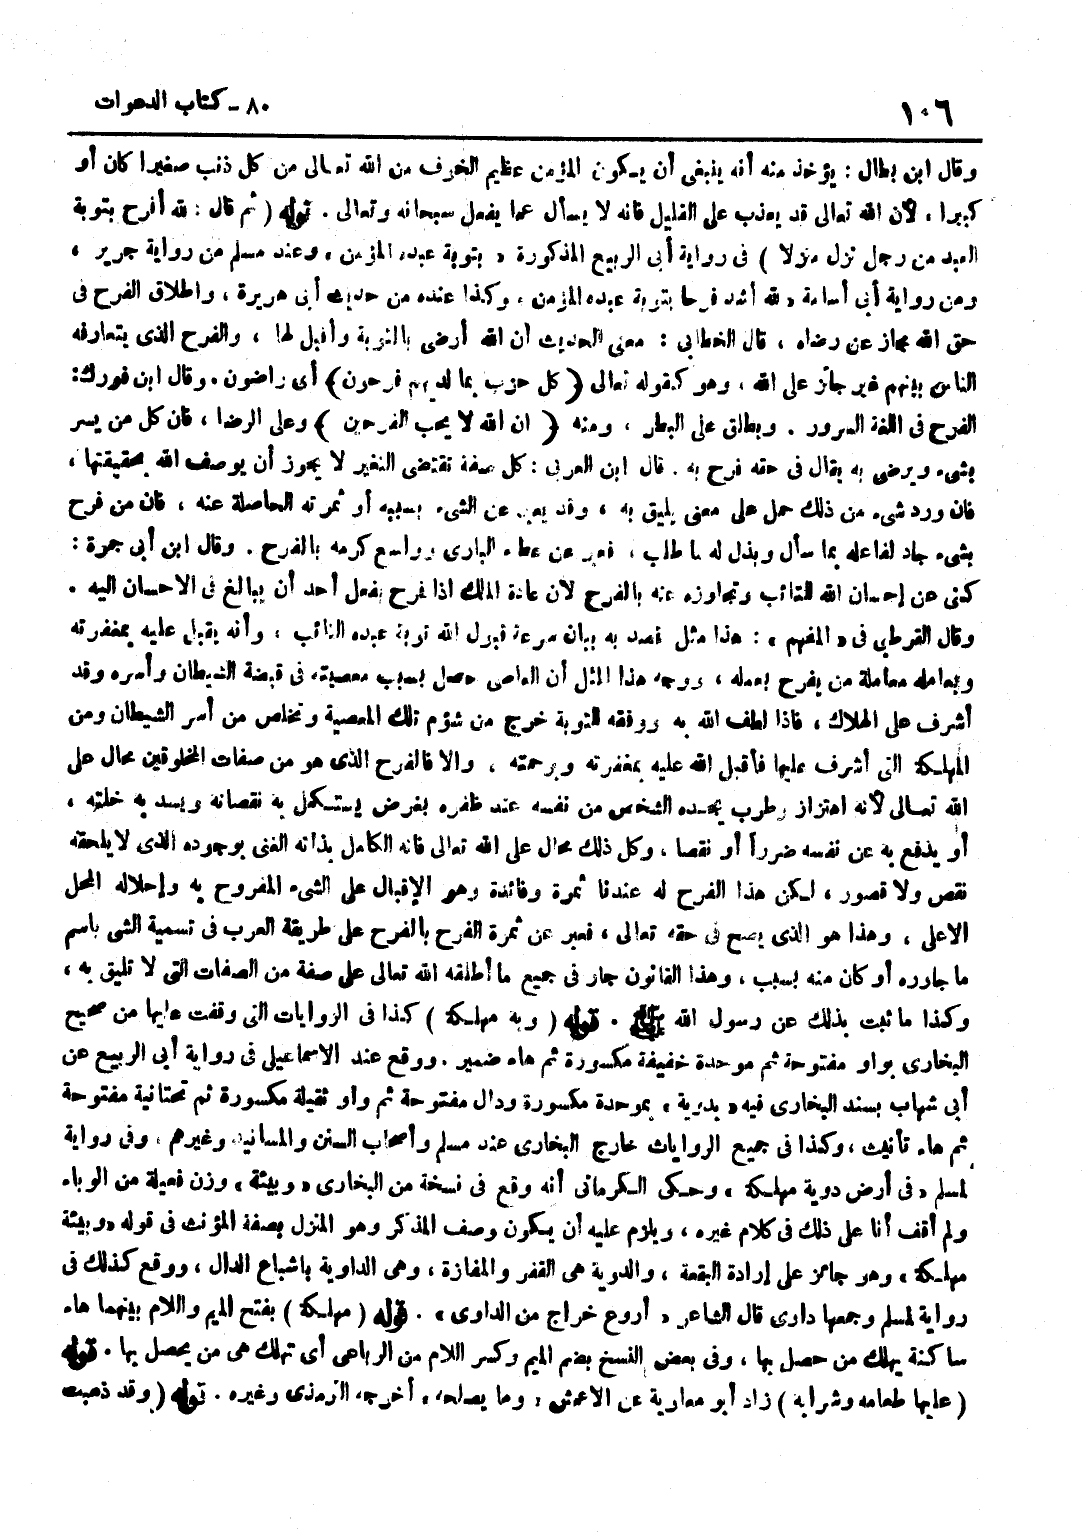 ١٠٦
٨٠ - كتاب الدعوات
وقال ابن بطال : يؤخذ منه أنه ينبغى أن يكون المؤمن عظيم الخوف من الله تعالى من كل ذنب صغيرا كان أو
كبيرا ، لأن الله تعالى قد يعذب على القليل فانه لا يسأل عما يفعل سبحانه وتعالى . قوله ( ثم قال : لله أفرح بتوبة
العبد من رجل نزل منزلا ) فى رواية أبى الربيع المذكورة « بتوبة عبده المؤمن ، وعند مسلم من رواية جرير ،
ومن رواية أبى أسامة « لله أشد فرحا بتوبة عبده المؤمن ، وكذا عنده من حديث أبى هريرة ، واطلاق الفرح فى
حق الله مجاز عن رضاه ، قال الخطابى : معنى الحديث أن الله أرضى بالتوبة وأقبل لها ، والفرح الذى يتعارفه
الناس بينهم غير جائز على الله ، وهو كقوله تعالى ( كل حزب بما لديهم فرحون ) أى راضون . وقال ابن فورك :
الفرح فى اللغة السرور . ويطلق على البطر ، ومنه ( ان الله لا يحب الفرحين ) وعلى الرضا ، فان كل من يسر
بشىء ويرضى به يقال فى حقه فرح به . قال ابن العربى : كل صفة تقتضى التغير لا يجوز أن يوصف الله بحقيقتها ،
فان ورد شىء من ذلك حمل على معنى يليق به ، وقد يعبر عن الشىء بسببه أو ثمرته الحاصلة عنه ، فان من فرح
بشىء جاد لفاعله بما سأل وبذل له ما طلب ، فعبر عن عطاء البارى وواسع كرمه بالفرح . وقال ابن أبى جمرة :
كنى عن إحسان الله للتائب وتجاوزه عنه بالفرح لأن عادة الملك اذا فرح بفعل أحد أن يبالغ فى الاحسان اليه .
وقال القرطبى فى « المفهم » : هذا مثل قصد به بيان سرعة قبول الله توبة عبده التائب ، وأنه يقبل عليه بمغفرته
ويعامله معاملة من يفرح بعمله ، ووجه هذا المثل أن العاصى حصل بسبب معصيته فى قبضة الشيطان وأسره وقد
أشرف على الهلاك ، فاذا لطف الله به ووفقه للتوبة خرج من شؤم تلك المعصية وتخلص من أسر الشيطان ومن
المهلكة التى أشرف عليها فأقبل الله عليه بمغفرته وبرحمته ، والا فالفرح الذى هو من صفات المخلوقين محال على
الله تعالى لأنه اهتزاز وطرب يجده الشخص من نفسه عند ظفره بغرض يستكمل به نقصانه ويسد به خلته ،
أو يدفع به عن نفسه ضررا أو نقصا ، وكل ذلك محال على الله تعالى فانه الكامل بذاته الغنى بوجوده الذى لا يلحقه
نقص ولا قصور ، لكن هذا الفرح له عندنا ثمرة وفائدة وهو الإقبال على الشىء المفروح به وإحلاله المحل
الاعلى ، وهذا هو الذى يصح فى حقه تعالى ، فعبر عن ثمرة الفرح بالفرح على طريقة العرب فى تسمية الشى باسم
ما جاوره أو كان منه بسبب ، وهذا القانون جار فى جميع ما أطلقه الله تعالى على صفة من الصفات التى لا تليق به ،
وكذا ما ثبت بذلك عن رسول الله ﷺ . قوله ( وبه مهلكة ) كذا فى الروايات التى وقفت عليها من صحيح
البخارى بواو مفتوحة ثم موحدة خفيفة مكسورة ثم هاء ضمير . ووقع عند الاسماعيلى فى رواية أبى الربيع عن
أبى شهاب بسند البخارى فيه « بدوية » بموحدة مكسورة ودال مفتوحة ثم واو ثقيلة مكسورة ثم تحتانية مفتوحة
ثم هاء تأنيث ، وكذا فى جميع الروايات خارج البخارى عند مسلم وأصحاب السنن والمسانيد وغيرهم ، وفى رواية
لمسلم « فى أرض دوية مهلكة » وحكى الكرمانى أنه وقع فى نسخة من البخارى « وبيئة » وزن فعيلة من الوباء
ولم أقف أنا على ذلك فى كلام غيره ، ويلزم عليه أن يكون وصف المذكر وهو المنزل بصفة المؤنث فى قوله « وبيئة
مهلكة » وهو جائز على إرادة البقعة ، والدوية هى القفر والمفازة ، وهى الداوية باشباع الدال ، ووقع كذلك فى
رواية لمسلم وجمعها داوى قال الشاعر « أروع خراج من الداوى » . قوله ( مهلكة ) بفتح الميم واللام بينهما هاء
ساكنة يهلك من حصل بها ، وفى بعض النسخ بضم الميم وكسر اللام من الرباعى أى تهلك هى من يحصل بها . قوله
( عليها طعامه وشرابه ) زاد أبو معاوية عن الاعمش « وما يصلحه » أخرجه الترمذى وغيره . قوله ( وقد ذهبت